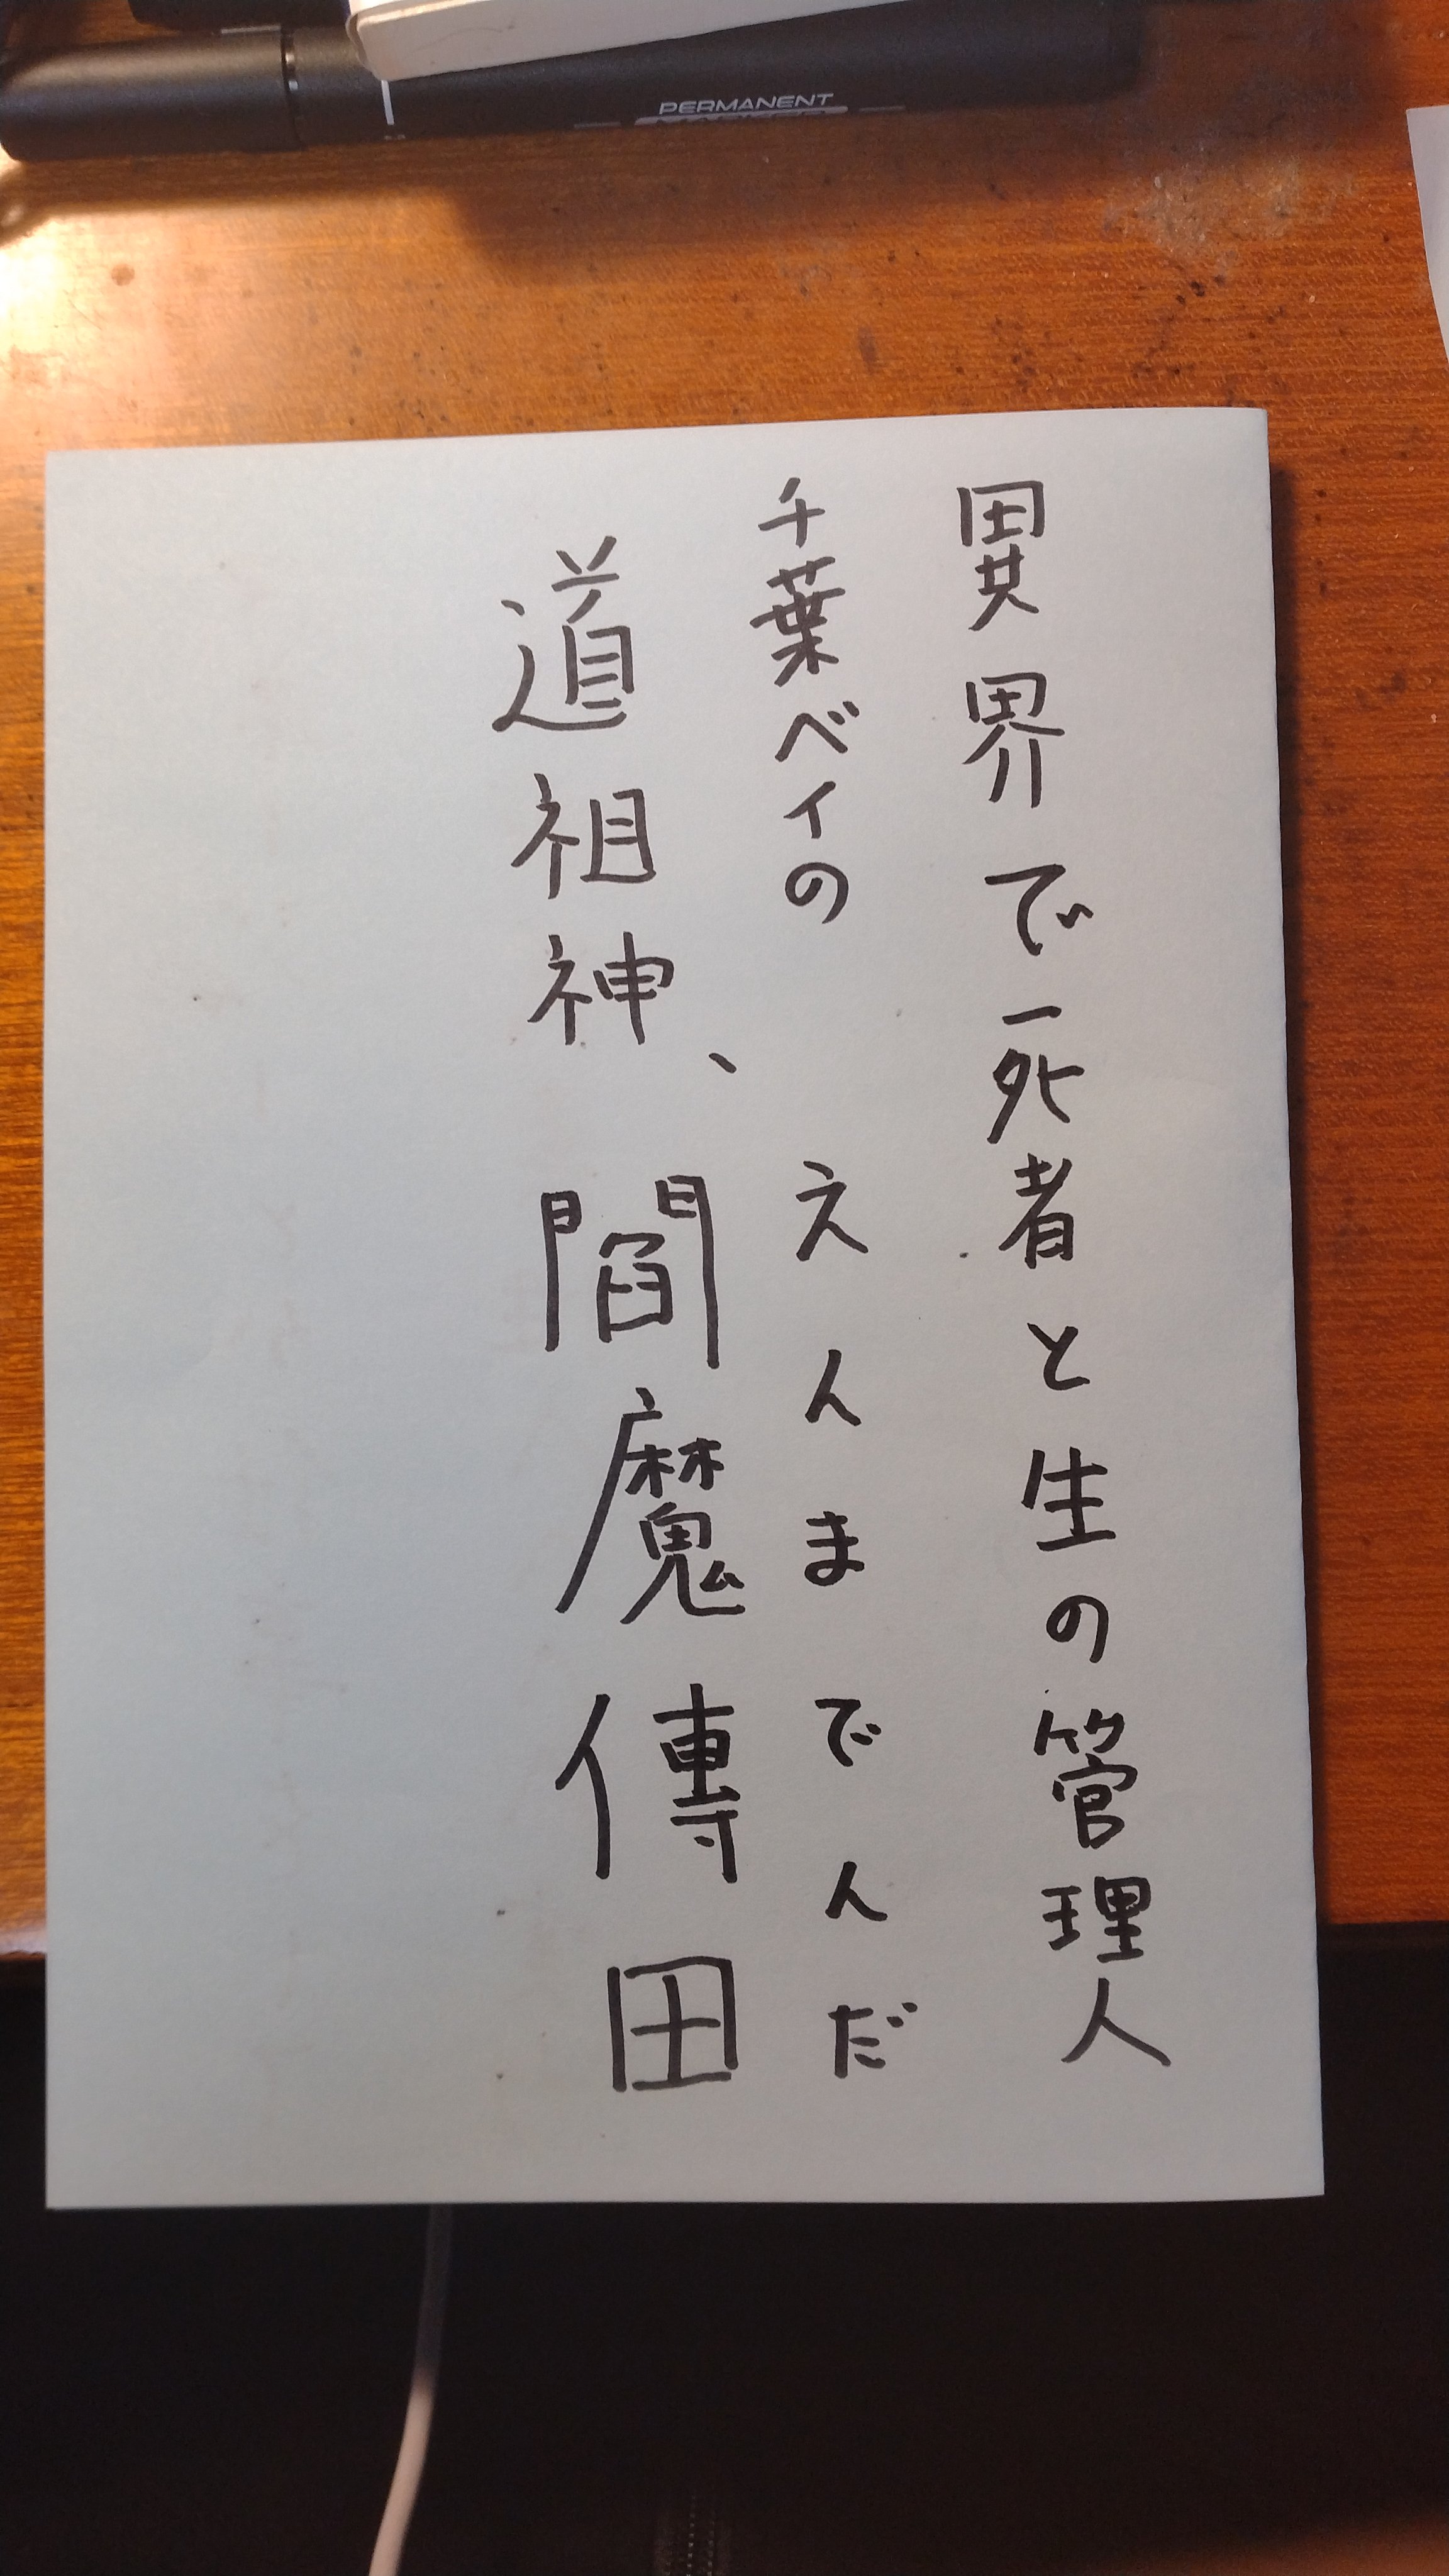 PERMANENT
MARKER
異界で死者と生の管理人
千葉ベイの
道祖神、
えんまでんだ
閻魔傳田